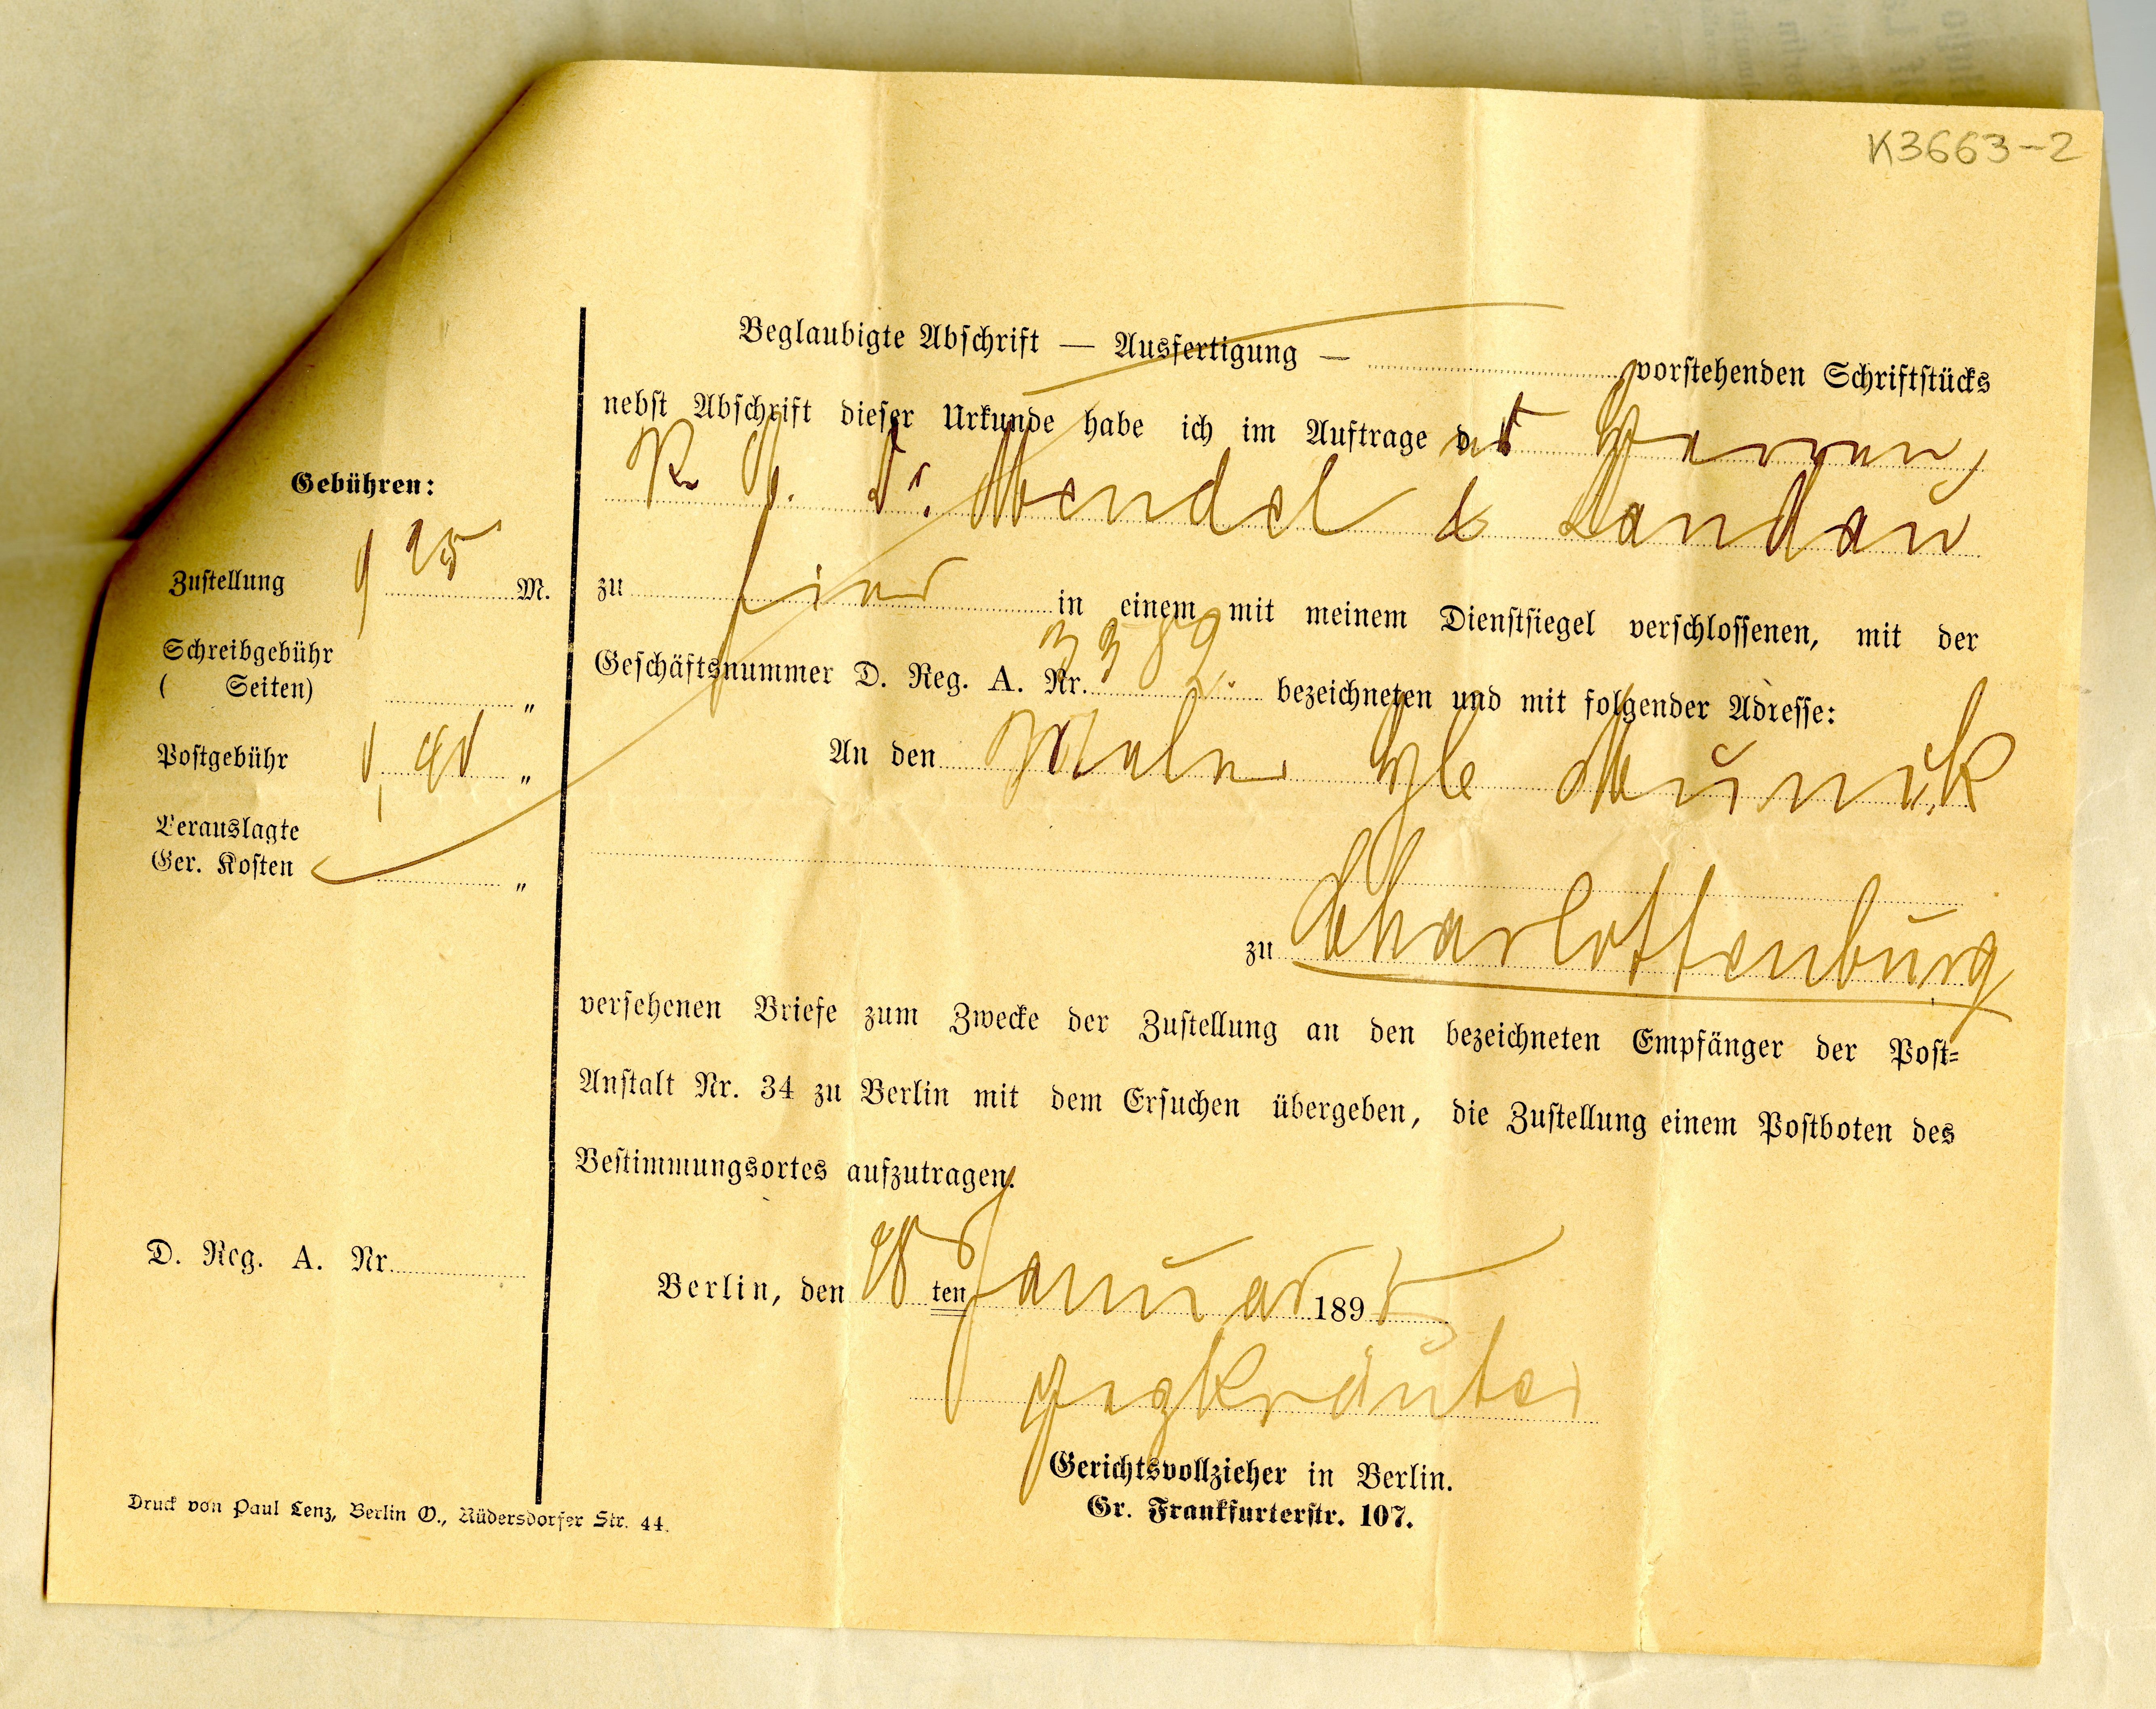 K3663-2
Beglaubigte Abschrift — Ausfertigung — vorstehenden Schriftstücks
nebst Abschrift dieser Urkunde habe ich im Auftrage der Herren
R. A. Dr. Mendel & Landau
zu hier in einem mit meinem Dienstsiegel verschlossenen, mit der
Geschäftsnummer D. Reg. A. Nr. 3382. bezeichneten und mit folgender Adresse:
An den Maler Munck
zu Charlottenburg
versehenen Briefe zum Zwecke der Zustellung an den bezeichneten Empfänger der Post-
Anstalt Nr. 34 zu Berlin mit dem Ersuchen übergeben, die Zustellung einem Postboten des
Bestimmungsortes aufzutragen.
Berlin, den 18 ten Januar 1895
gez Kräuter
Gerichtsvollzieher in Berlin.
Gr. Frankfurterstr. 107.
Gebühren:
Zustellung M.
Schreibgebühr
( Seiten) "
Postgebühr "
Verauslagte
Ger. Kosten "
D. Reg. A. Nr.
Druck von Paul Lenz, Berlin O., Rüdersdorfer Str. 44.